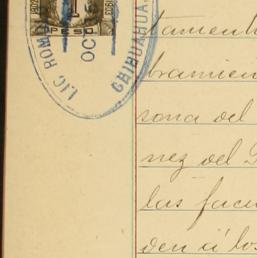 PESO
OCT
LIC. ROM
CHIHUAHUA
tament
bramien
sona del
nez del
las facu
den á los